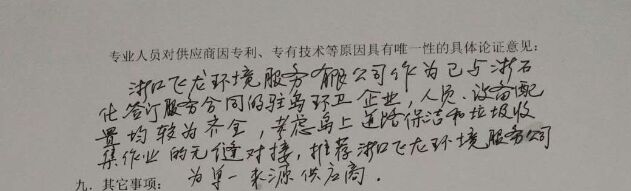 专业人员对供应商因专利、专有技术等原因具有唯一性的具体论证意见：
浙江飞龙环境服务有限公司作为已与浙石
化签订服务合同的驻岛环卫企业，人员、设备配
置均较为齐全，考虑岛上道路保洁和垃圾收
集作业的无缝对接，推荐浙江飞龙环境服务公司
为单一来源供应商.
九、其它事项：